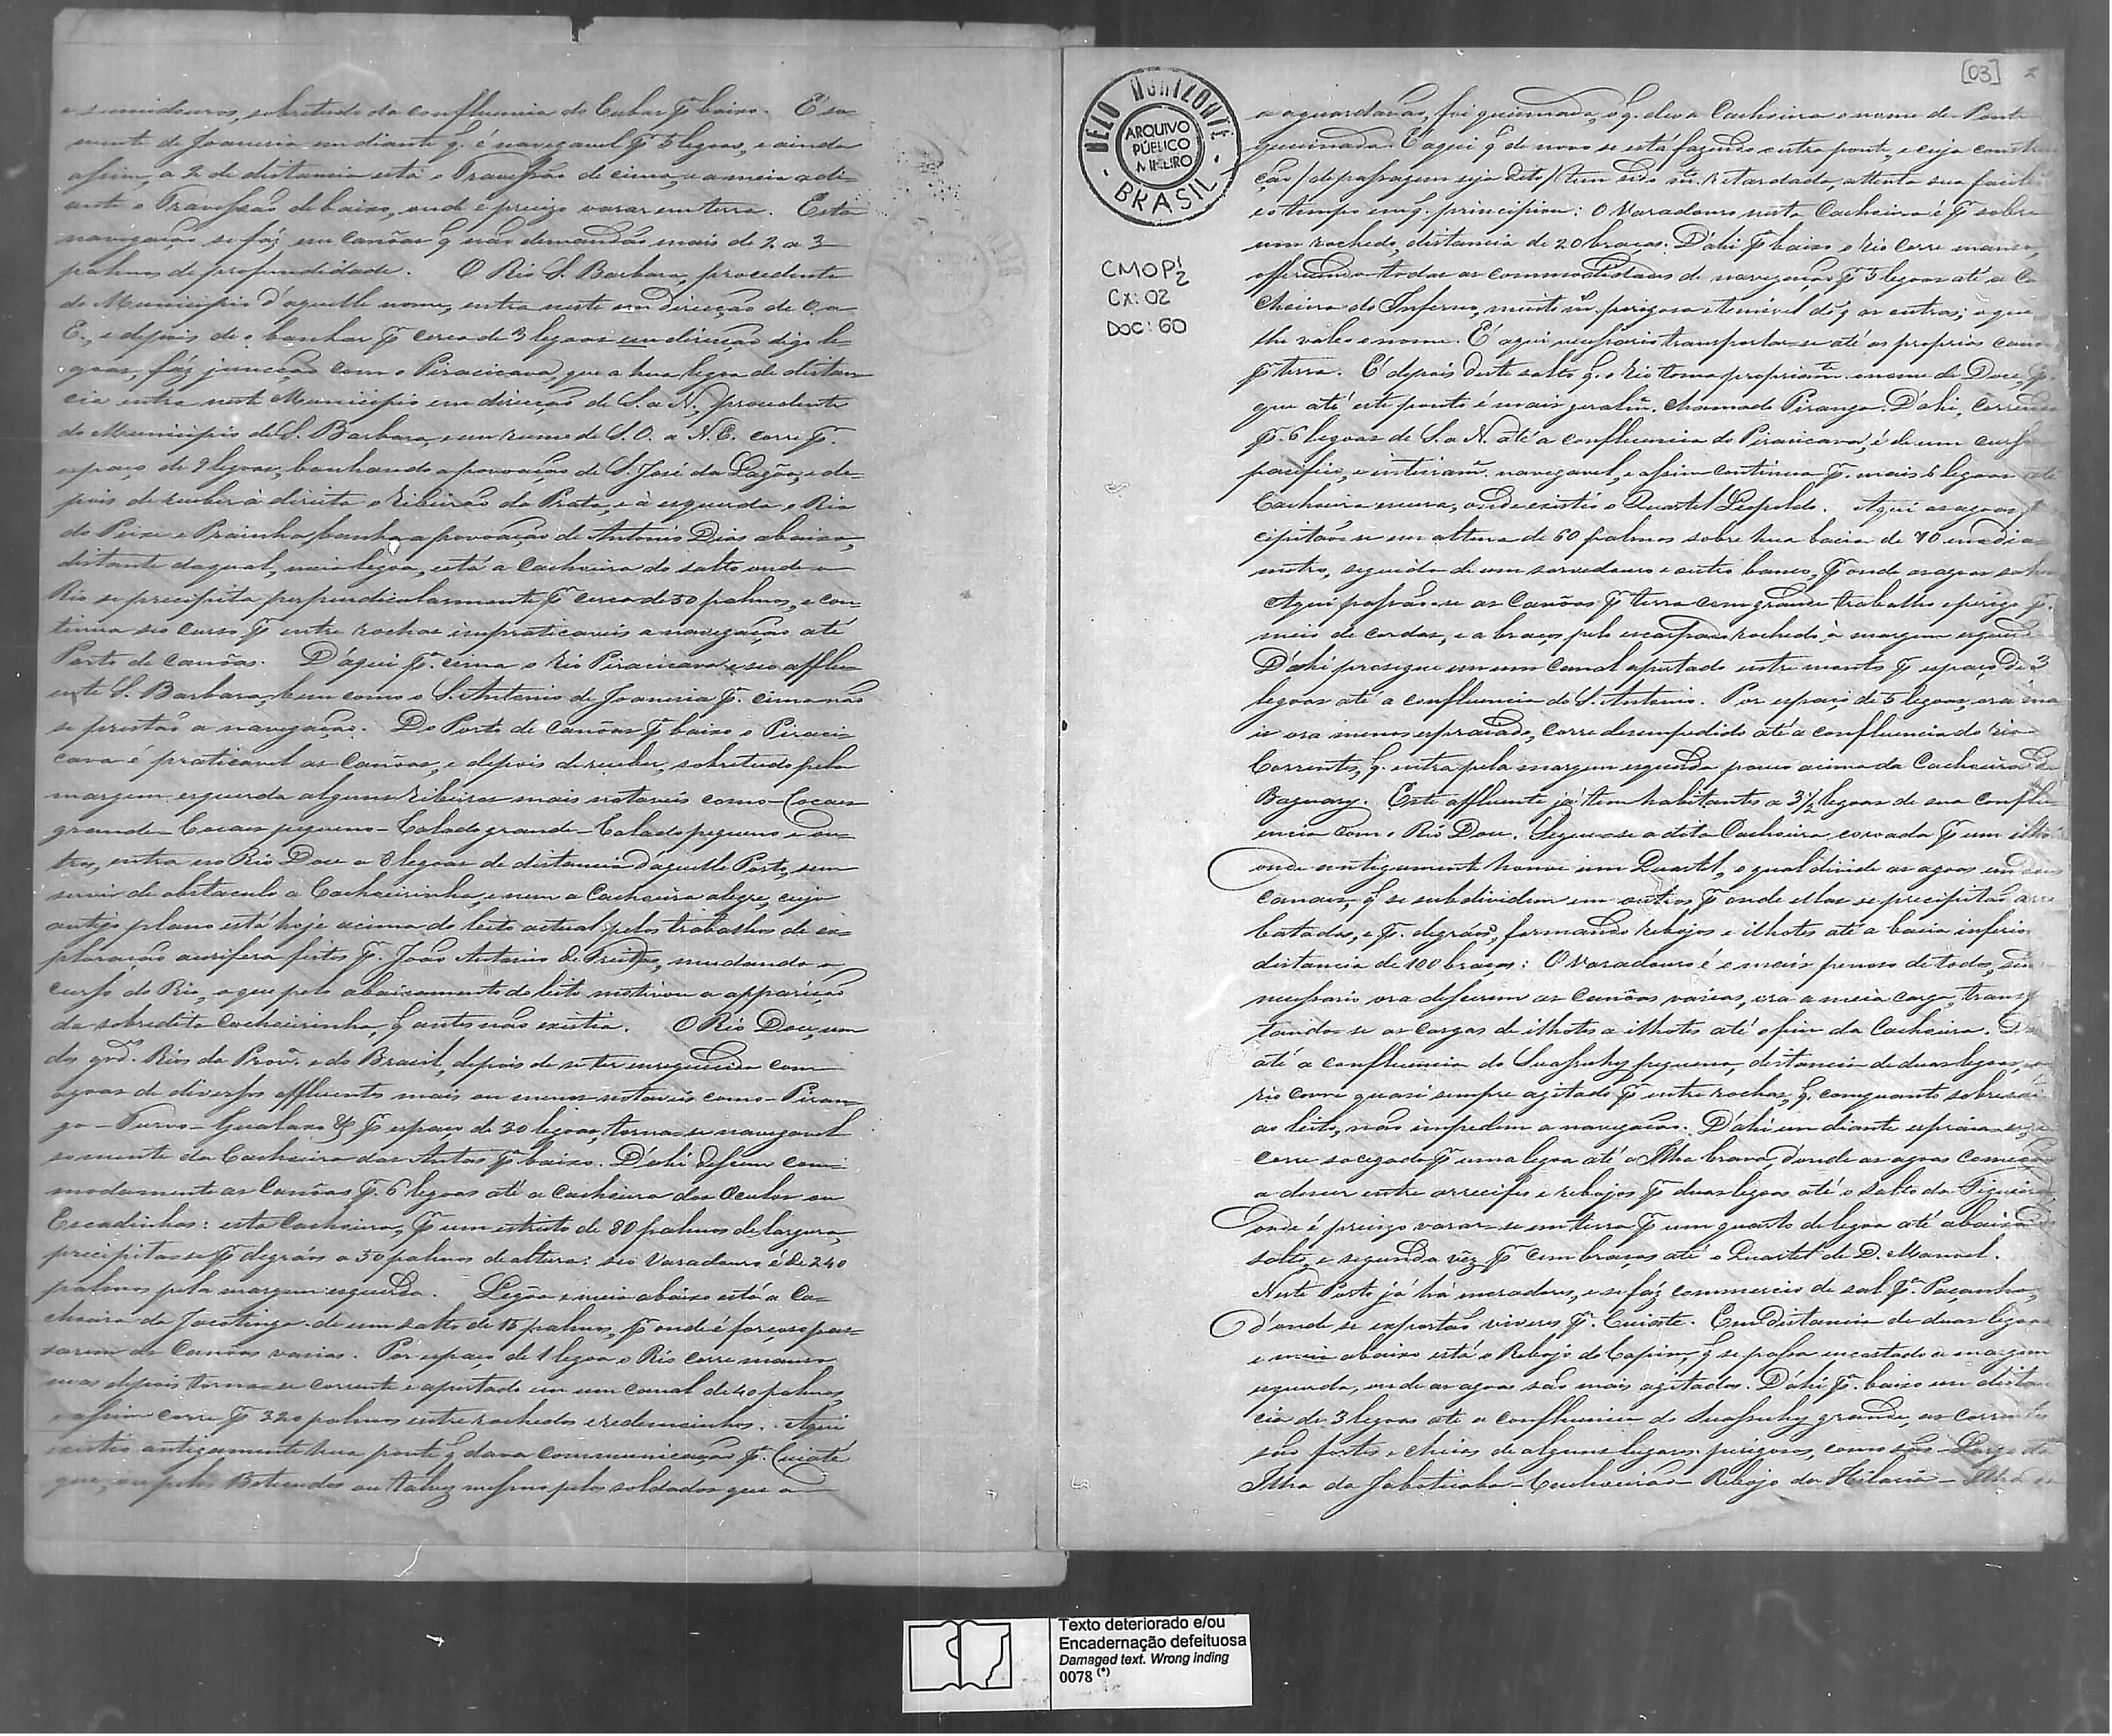 e sumidouros, sobretudo da confluencia do Cubas pª baixo. É so-
mente de Joanesia em diante q. é navegavel pr 5 legoas, e ainda
assim, a 2 de distancia está o Travessão de cima, e a meia adi-
ante o Travessão de baixo, onde é preciso varar em terra. Esta
navegação se fáz em canôas q não demandão mais de 2 a 3
palmos de profundidade. O Rio S. Barbara, procedente
do Municipio d'aquelle nome, entra neste em direcção de O. a
E., e depois de o banhar pr cerca de 3 legoas em direcção digo le-
goas, fáz juncção com o Piracicava, que a hua legoa de distan-
cia entra neste Municipio em direcção de S. a N., procedente
do Municipio de S. Barbara, e em rumo de S. O. a N. E. corre pr.
espaço de 9 legoas, banhando a povoação de S. José da Lagôa, e de-
pois de receber á direita o Ribeirão da Prata, e á esquerda o Rio
do Peixe e Prainha, banha a povoação de Antonio Dias abaixo,
distante da qual, meia legoa, está a Cachoeira do salto onde o
Rio se precipita perpendicularmente pr cerca de 50 palmos, e con-
tinua seo curso pr entre rochas impraticaveis a navegação até
Porto de canôas. D'aqui pª. cima o Rio Piracicava e seo afflu-
ente S. Barbara, bem como o S. Antonio de Joanesia pª. cima não
se prestão a navegação. Do Porto de Canôas pª baixo o Piraci-
cava é praticavel as Canôas, e depois de receber, sobretudo pela
margem esquerda alguns ribeiros mais notaveis como - Cocaes
grande - Cocaes pequeno - Calado grande - Calado pequeno e ou-
tros, entra no Rio Doce a 8 legoas de distancia d'aquelle Porto, sem
servir de obstaculo a Cachoeirinha, e nem a Cachoeira alegre, cujo
antigo plano está hoje acima do leito actual pelos trabalhos de ex-
ploração aurifera feitos pr. João Antonio de Freitas, mudando o
curso do Rio, o que pelo abaixamento do leito motivou a apparição
da sobredita cachoeirinha, q antes não existia. O Rio Doce, um
dos grds. Rios da Provª. e do Brasil, depois de se ter enriquecido com
agoas de diversos affluentes mais ou menos notaveis como - Piran-
ga - Turvo - Gualaxo &ª pr espaço de 30 legoas, torna-se navegavel
somente da Cachoeira das Antas pª baixo. D'ahi descem com-
modamente as Canôas pr. 6 legoas até a Cachoeira dos Oculos ou
Escadinhas: esta Cachoeira, pr um estreito de 80 palmos de largura,
precipita-se pr degráos a 50 palmos de altura: seo Varadouro é de 240
palmos pela margem esquerda. Legoa e meia abaixo está a Ca-
choeira da Jacotinga de um salto de 15 palmos, pr onde é forçoso pas-
sarem as Canôas vasias. Por espaço de 1 legoa o Rio corre manso
mas depois torna-se corrente e apertado em um canal de 40 palmos,
e assim corre pr 320 palmos entre rochedos e redemoinhos. Aqui
existio antigamente hua ponte q dava communicação pª. Cuiaté
que, ou pelos Botecudos ou talvez mesmo pelos soldados que a
[03]
BELO HORIZONTE
ARQUIVO
PÚBLICO
MINEIRO
BRASIL
CMOP 1/2
CX: 02
DOC: 60
a aguardavão, foi queimada, o q. deo a Cachoeira o nome de Ponte
queimada. É aqui q de novo se está fazendo outra ponte, e cuja constru-
ção / de passagem seja dito / tem sido mto. retardada, attenta sua facili-
e o tempo em q. principiou: O Varadouro nesta Cachoeira é pr sobre
um rochedo, distancia de 20 braças. D'ahi pª baixo o Rio corre manso,
offerecendo todas as commodidades de navegação pr 3 legoas até a Ca-
choeira do Inferno, muito mais perigosa e temivel do q as outras; o que
lhe valeo o nome. É aqui necessario transportar-se até as proprias canoas
pr terra. É depois deste salto q. o Rio toma propriamte. o nome de Doce, pr
que até este ponto é mais geralme. chamado Piranga. D'ahi, correndo
pr. 6 legoas de S. a N. até a confluencia do Piracicava, é de um curso
pacifico, e inteirame. navegavel, e assim continua pr. mais 6 legoas até
Cachoeira escura, onde existio o Quartel Leopoldo. Aqui as agoas
cipitão-se em altura de 60 palmos sobre hua bacia de 70 em dia-
metro, seguida de um sorvedouro e outro banco, pr onde as agoas
Aqui passão-se as Canôas pr terra com grande trabalho e perigo pr.
meio de cordas, e a braços, pelo escarpado rochedo á margem esquerda
D'ahi prosegue em um canal apertado entre montes pr espaço de 3
legoas até a confluencia do S. Antonio. Por espaço de 5 legoas, ora ma-
is ora menos espraiado, corre desempedido até a confluencia do rio
Corrente, q. entra pela margem esquerda pouco acima da Cachoeira de
Baguary. Este affluente já tem habitantes a 3 1/2 legoas de sua conflu-
encia com o Rio Doce. Segue-se a dita Cachoeira coroada pr um ilhote
onde antigamente houve um Quartel, o qual divide as agoas em dous
canaes, q se subdividem em outros pr onde ellas se precipitão arre-
batadas, e pr. degráos, formando rebojos e ilhotes até a bacia inferior
distancia de 100 braças: O Varadouro é o mais penoso de todos,
necessario ora descerem as Canôas vasias, ora a meia carga, transpor-
tando-se as cargas de ilhotes a ilhotes até o fim da Cachoeira.
até a confluencia do Suassuhy pequeno, distancia de duas legoas, o
rio corre quasi sempre agitado pr entre rochas, q. comquanto sobresaião
ao leito, não impedem a navegação. D'ahi em diante espraia-se, e
corre socegado pr uma legoa até a Ilha brava, d'onde as agoas começão
a descer entre arrecifes e rebojos pr duas legoas até o salto da Figueira,
onde é preciso varar-se em terra pr um quarto de legoa até abaixo do
salto, e segunda vêz pr cem braças até o Quartel de D. Manoel.
Neste Porto já há moradores, e se fáz commercio de sal pª. Paçanha,
d'onde se exportão viveres pª. Cuiaté. Em distancia de duas legoas
e meia abaixo está o Rebojo do Capim, q se passa encostado a margem
esquerda, onde as agoas são mais agitadas. D'ahi pª. baixo em distan-
cia de 3 legoas até a confluencia do Suassuhy grande, as correntes
são fortes e cheias de alguns lugares perigosos, como são - Largo da
Ilha da Jaboticaba - Cachoeirão - Rebojo do Hilario - Ilha
Texto deteriorado e/ou
Encadernação defeituosa
Damaged text. Wrong inding
0078 (*)